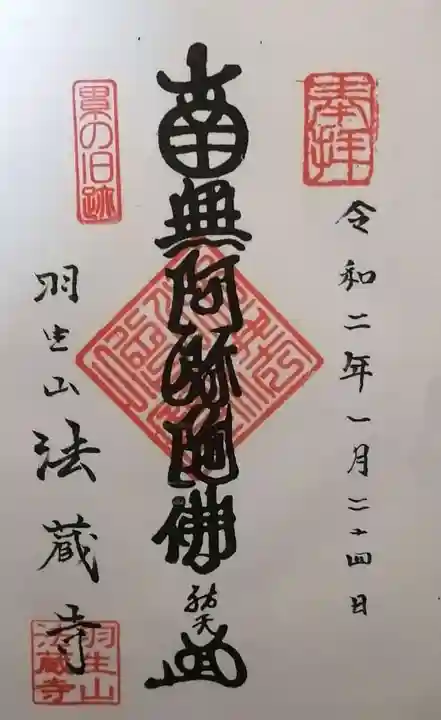 奉拝
令和二年一月二十四日
南無阿弥陀佛
祐天
累の旧跡
羽生山
法蔵寺
羽生山
法蔵寺